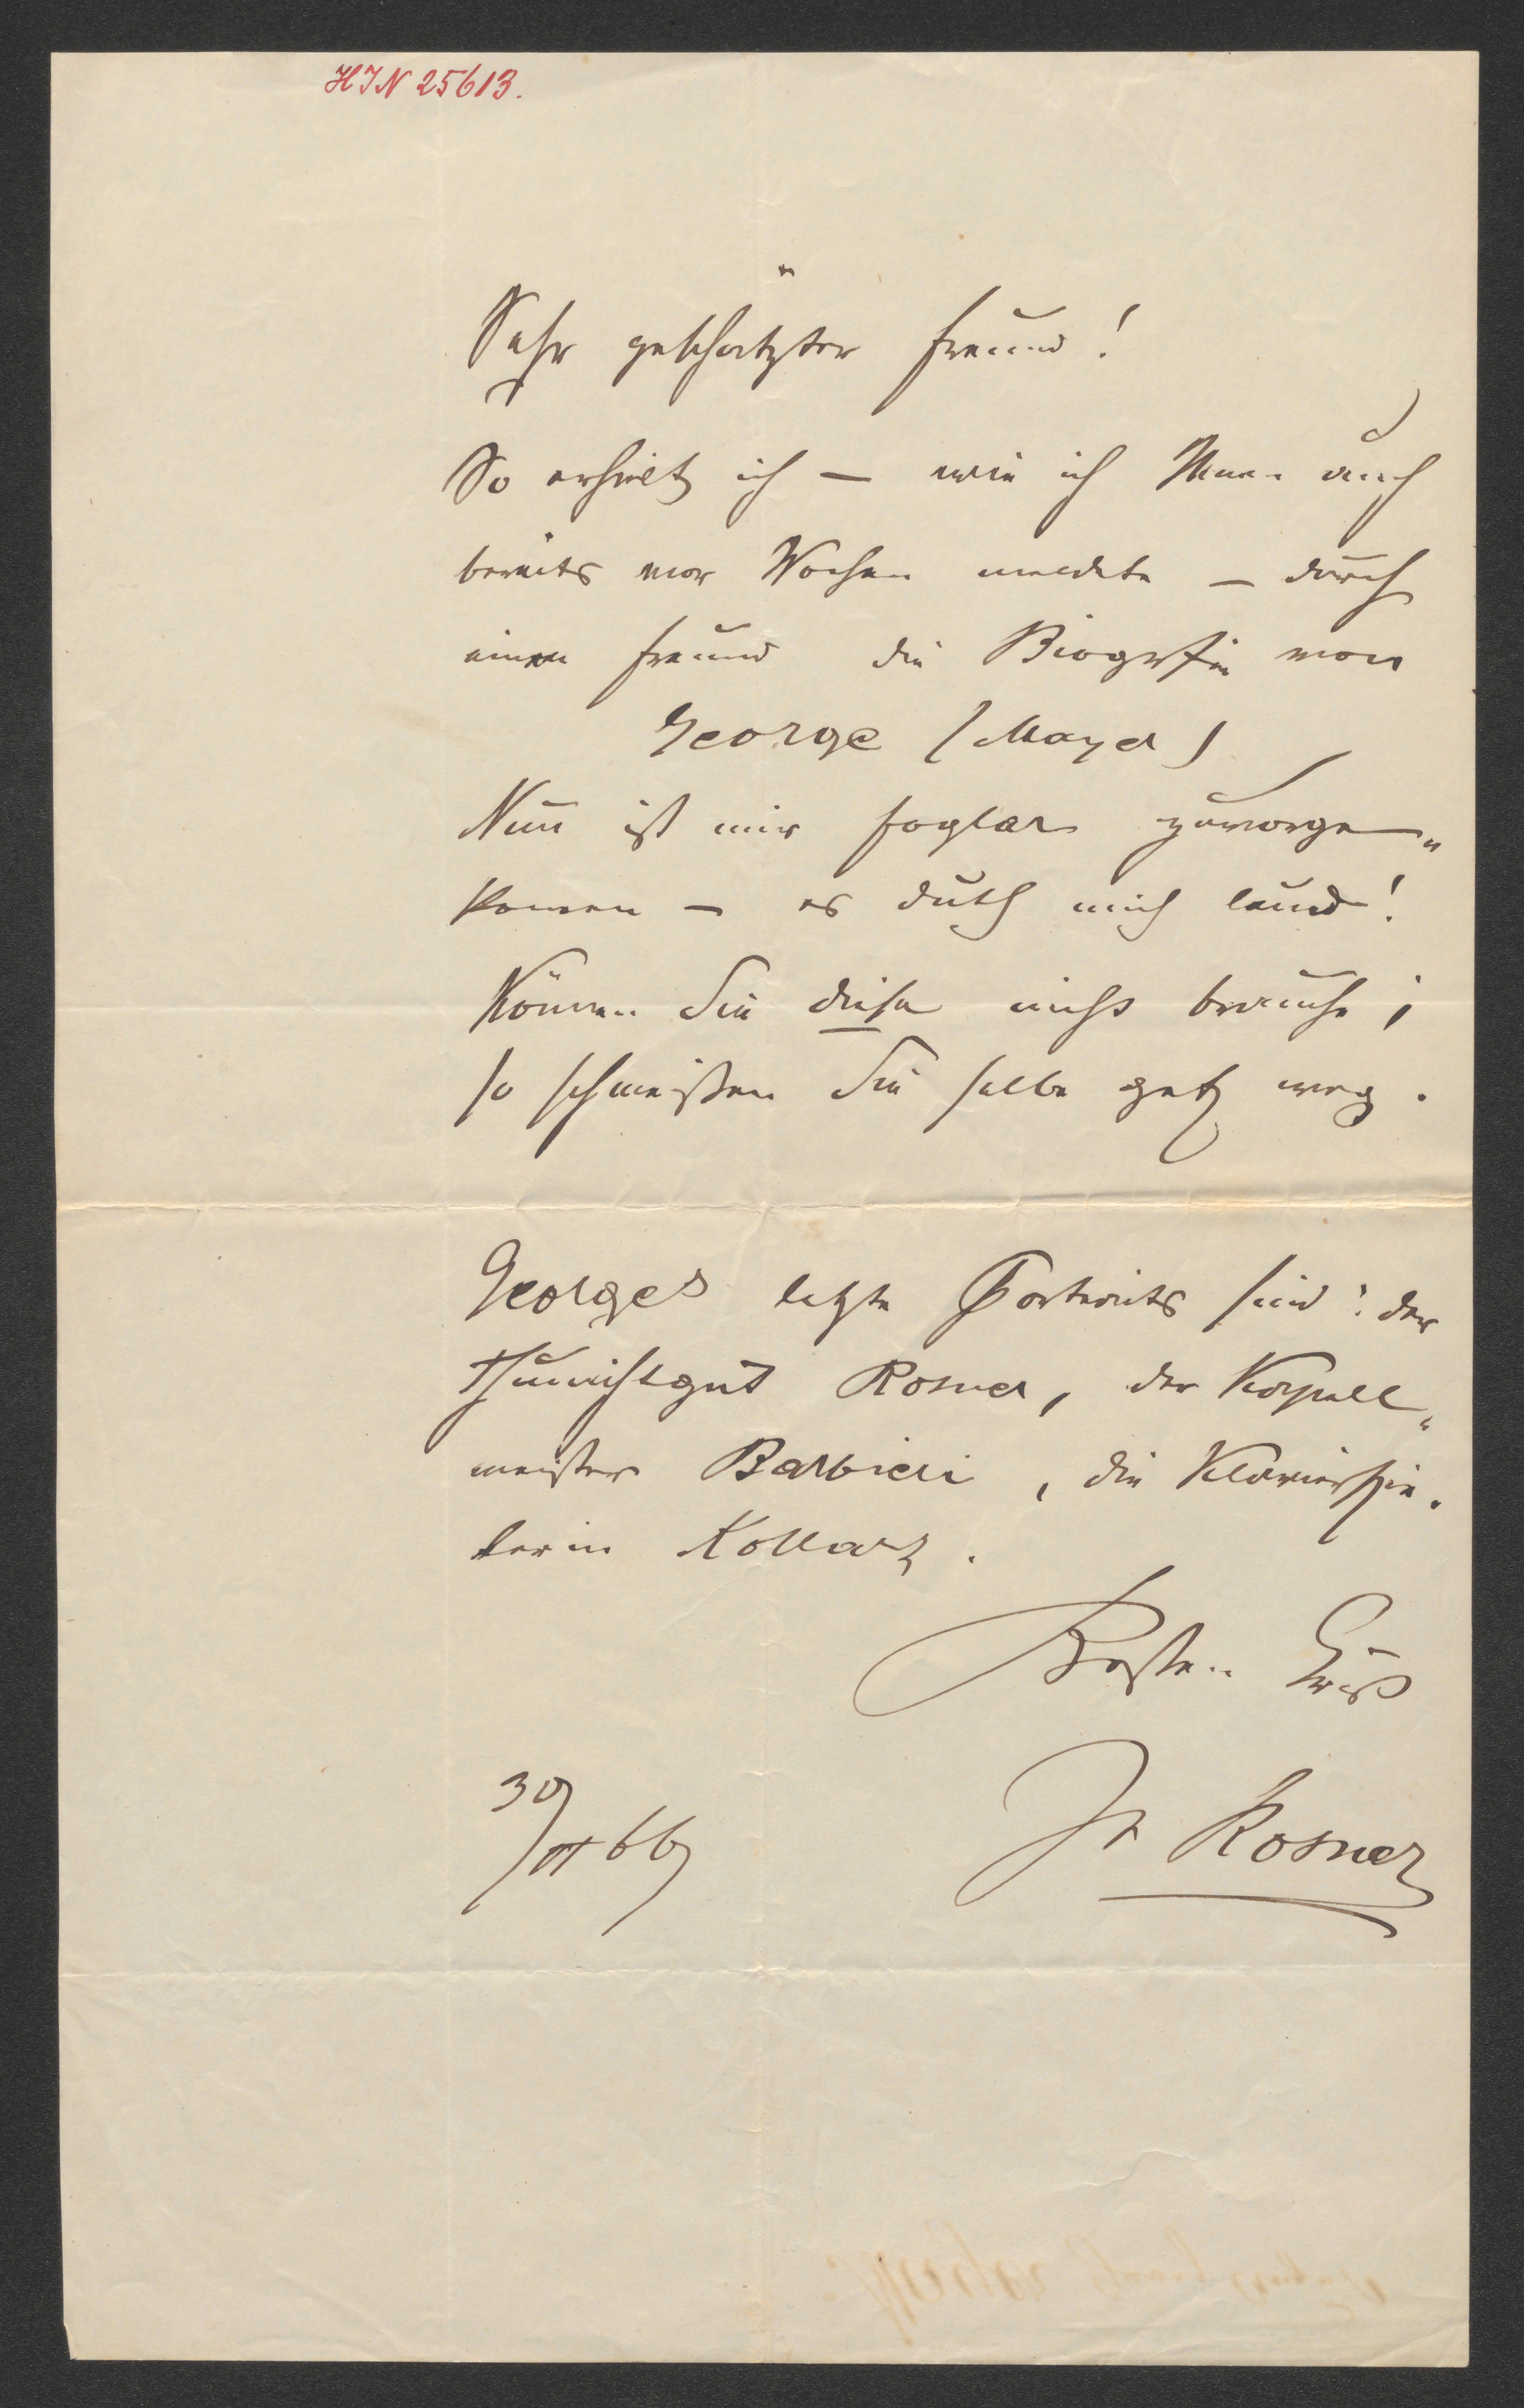 HIN 25613.
Sehr geschätzter Freund!
So erhielt ich — wie ich Ihnen auch
bereits vor Wochen meldete — durch
einen Freund die Biografie von
George (Mayer)
Nun ist mir Foglar zuvorge„
komen — es duth mich leud!
Können Sie diese nicht brauche,
so schmeißen Sie selbe getz weg.
Georges letzte Portraits sind: der
Thunichtgut Rosner, der Kapell„
meister Barbieri, die Klavierspie„
lerin Kollarz.
Besten Gruß
Fr Rosner
30/11 66